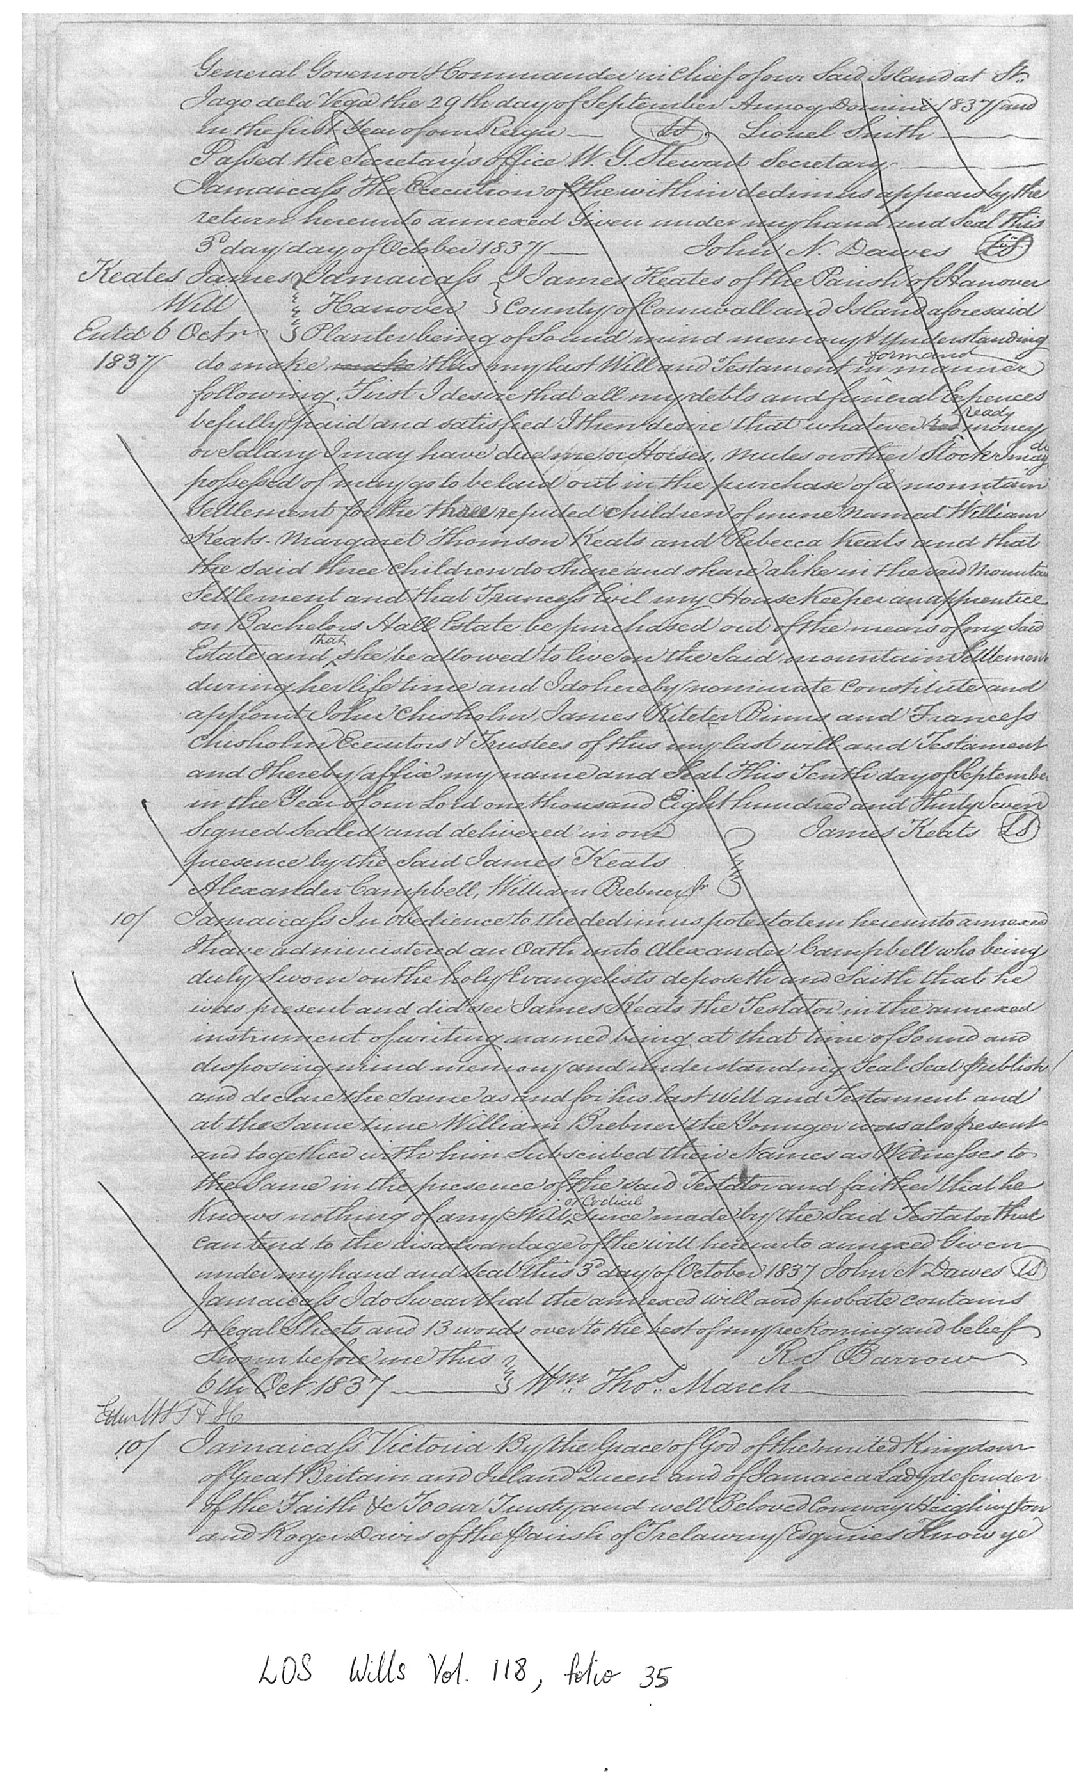 General Governor & Commander in Chief of our Said Island at St.
Jago de la Vega the 29th day of September Annoq Domini 1837 and
in the first Year of our Reign — LS. Lionel Smith —
Passed the Secretary's office W. G. Stewart Secretary —
Jamaica ss The Execution of the within dedimus appears by the
return hereunto annexed Given under my hand and Seal this
3d day day of October 1837 — John N. Dawes LS
Keates James Jamaica ss I James Keates of the Parish of Hanover
Will Hanover County of Cornwall and Island aforesaid
Entd 6 Octr Planter being of Sound mind memory & Understanding
1837 do make make this my last Will and Testament in form and manner
following. First I desire that all my debts and funeral Expences
be fully paid and satisfied I then desire that whatever ready money
or Salary I may have due me or Horses, mules or other Stock I may die
possessed of may go to be laid out in the purchase of a mountain
Settlement for the three reputed children of mine named William
Keats. Margaret Thomson Keats and Rebecca Keats and that
the said three Children do Share and share alike in the said Mountain
Settlement and that Francess Evil my House Keeper an apprentice
on Bachelors Hall Estate be purchased out of the means of my Said
Estate and that she be allowed to live on the Said mountain Settlement
during her life time and I do hereby nominate Constitute and
appoint John Chisholm James Binns and Francess
Chisholm Executors & Trustees of this my last will and Testament
and I hereby affix my name and Seal This Tenth day of September
in the Year of our Lord one thousand Eight hundred and Thirty Seven
Signed Sealed and delivered in our James Keats LS
presence by the Said James Keats
Alexander Campbell, William Brebner Jr
10/ Jamaica ss In obedience to the dedimus potestatem hereunto annexed
I have administered an Oath unto Alexander Campbell who being
duly Sworn on the holy Evangelists deposeth and Saith that he
was present and did see James Keats the Testator in the annexed
instrument of writing named being at that time of Sound and
disposing mind memory and understanding Seal Seal Publish
and declare the Same as and for his last Will and Testament and
at the Same time William Brebner the Younger was also present
and together with him Subscribed their Names as Witnesses to
the Same in the presence of the said Testator and farther that he
Knows nothing of any Will or Codicil Since made by the Said Testator that
can tend to the disadvantage of the will hereunto annexed Given
under my hand and seal this 3d day of October 1837 John N Dawes LS
Jamaica ss I do Swear that the annexed will and probate contains
4 legal Sheets and 13 words over to the best of my reckoning and belief
Sworn before me this R S Barrow
6th Oct 1837 — Wm Thos. March —
10/ Jamaica ss Victoria By the Grace of God of the united Kingdom
of Great Britain and Ireland Queen and of Jamaica Lady defender
of the Faith &c To our Trusty and well Beloved Conway Heighington
and Roger Davis of the Parish of Trelawny Esquires Know ye
LOS Wills Vol. 118, folio 35